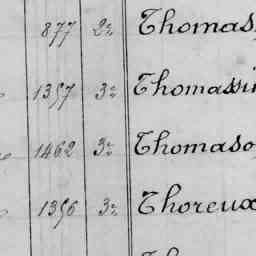 877 2e Thomas
1357 3e Thomassin
1462 3e Thomaso
1356 3e Thoreux